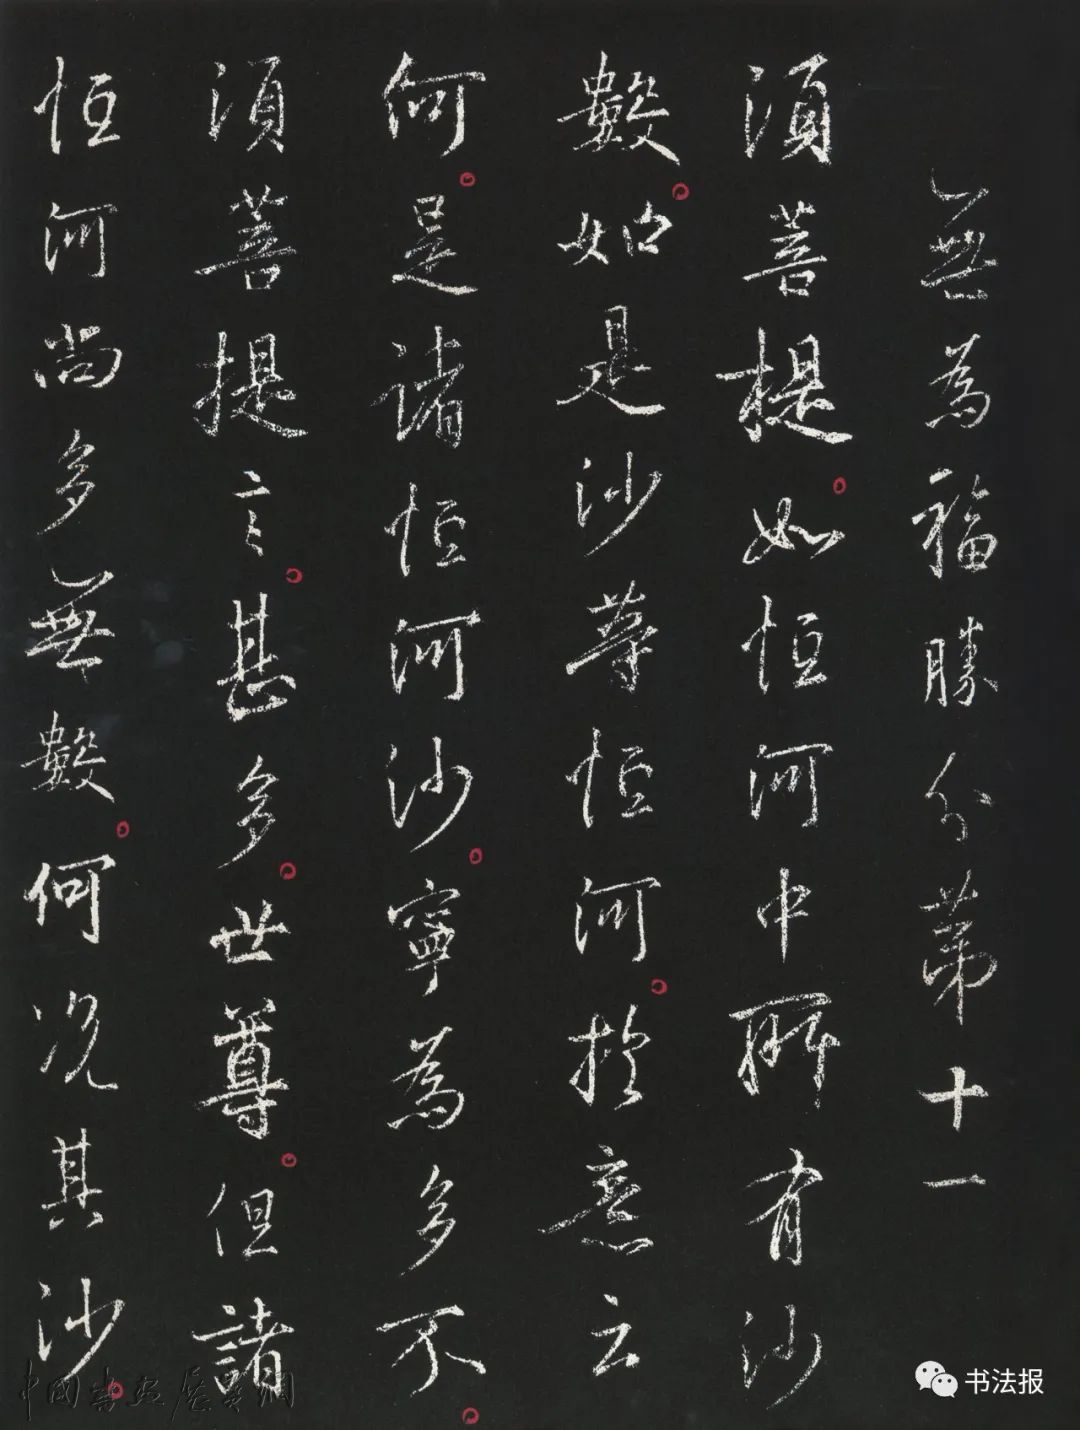 無為福勝分第十一
須菩提如恒河中所有沙
數如是沙等恒河於意云
何是諸恒河沙寧為多不
須菩提言甚多世尊但諸
恒河尚多無數何況其沙
书法报
中國書畫展賽網